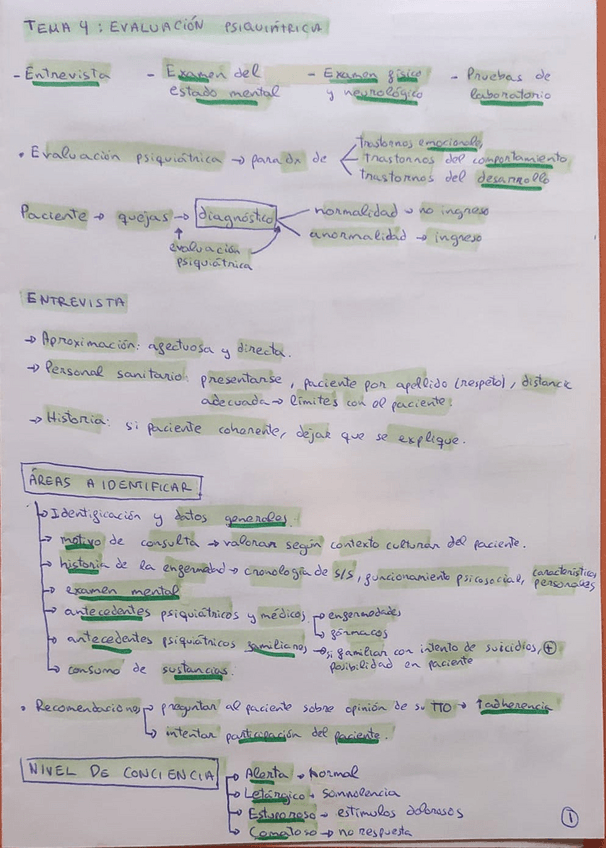 TEMA 4: EVALUACIÓN PSIQUIÁTRICA
- Entrevista - Examen del estado mental - Examen físico y neurológico - Pruebas de laboratorio
• Evaluación psiquiátrica → para dx de
trastornos emocionales
trastornos del comportamiento
trastornos del desarrollo
Paciente → quejas → diagnóstico
normalidad → no ingreso
anormalidad → ingreso
evaluación psiquiátrica
ENTREVISTA
→ Aproximación: afectuosa y directa.
→ Personal sanitario: presentarse, paciente por apellido (respeto), distancia
adecuada → límites con el paciente.
→ Historia: si paciente coherente, dejar que se explique.
ÁREAS A IDENTIFICAR
→ Identificación y datos generales.
→ motivo de consulta → valorar según contexto cultural del paciente.
→ historia de la enfermedad → cronología de S/S, funcionamiento psicosocial, características personales
→ examen mental
→ antecedentes psiquiátricos y médicos → enfermedades
→ fármacos
→ antecedentes psiquiátricos familiares → si familiar con intento de suicidios, ⊕
posibilidad en paciente
→ consumo de sustancias.
• Recomendaciones → preguntar al paciente sobre opinión de su TTO → ↑adherencia
→ intentar participación del paciente.
NIVEL DE CONCIENCIA
→ Alerta → Normal
→ Letárgico → somnolencia
→ Estuporoso → estímulos dolorosos
→ Comatoso → no respuesta
1